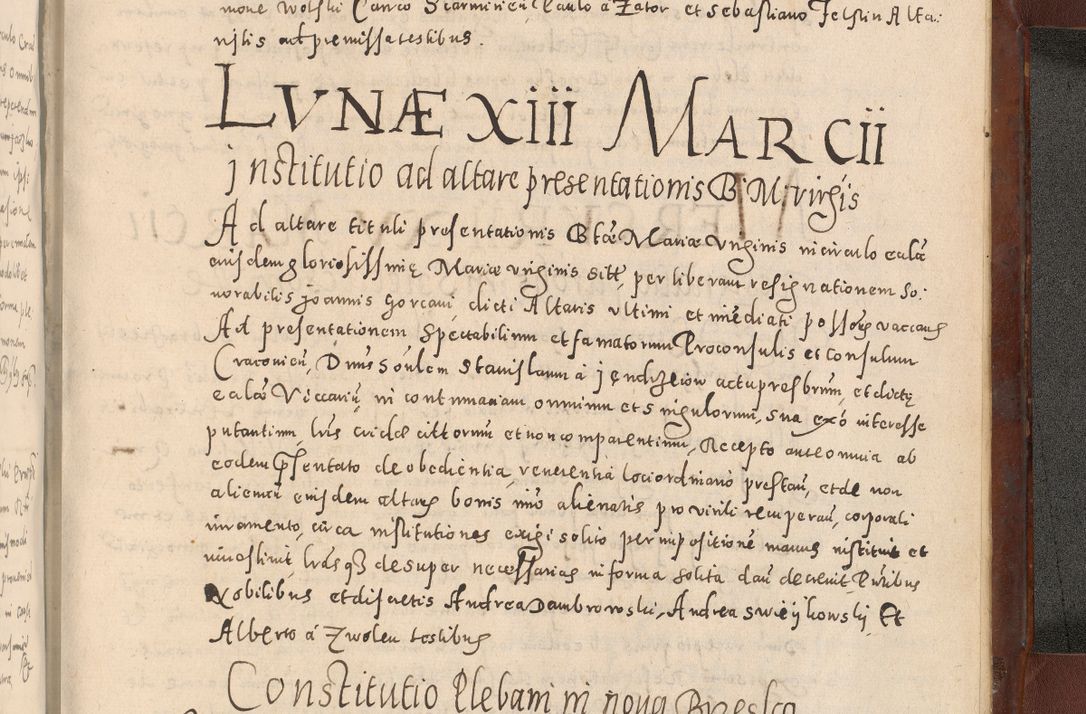 none Wolski Canco Scarminien, Paulo a Zator et Sebastiano Felstin Altari
nstis ad premissa testibus.
LVNÆ XIII MARCII
Institutio ad altare presentationis B. M. virgis
Ad altare tituli presentationis Btæ Mariæ Virginis in circulo ecclæ
eiusdem gloriosissimę Mariæ virginis sitt, per liberam resignationem ho:
norabilis Joannis Gorcani, dicti Altaris ultimi et imediati possoris vacans
Ad presentationem Spectabilium et famatorum Proconsulis et consulum
Cracovien, Dnus S Stanislaum á Jendzeiow actu presbrum, et dictę
ecclæ Viccariū in continuariam omnium et singulorum, sua exō interesse
putantium, lris eccle cittorum et non comparentium, Accepto ante omnia ab
eodem psentato de obedientia, reverentia loci ordinario prestan, et de non
alienan eiusdem altaris bonis imo alienatis pro virili recuperan, corporali
iuramento, circa institutiones exigi solito per impositione manus instituit et
investivit lrasqz desuper necessarias in forma solita dari decrevit, Pntibus
Nobilibus et discretis Andrea Dambrowski, Andrea Swieykowsky, Et
Alberto á Zwolen testibus
Constitutio Plebani in nova Brzesko